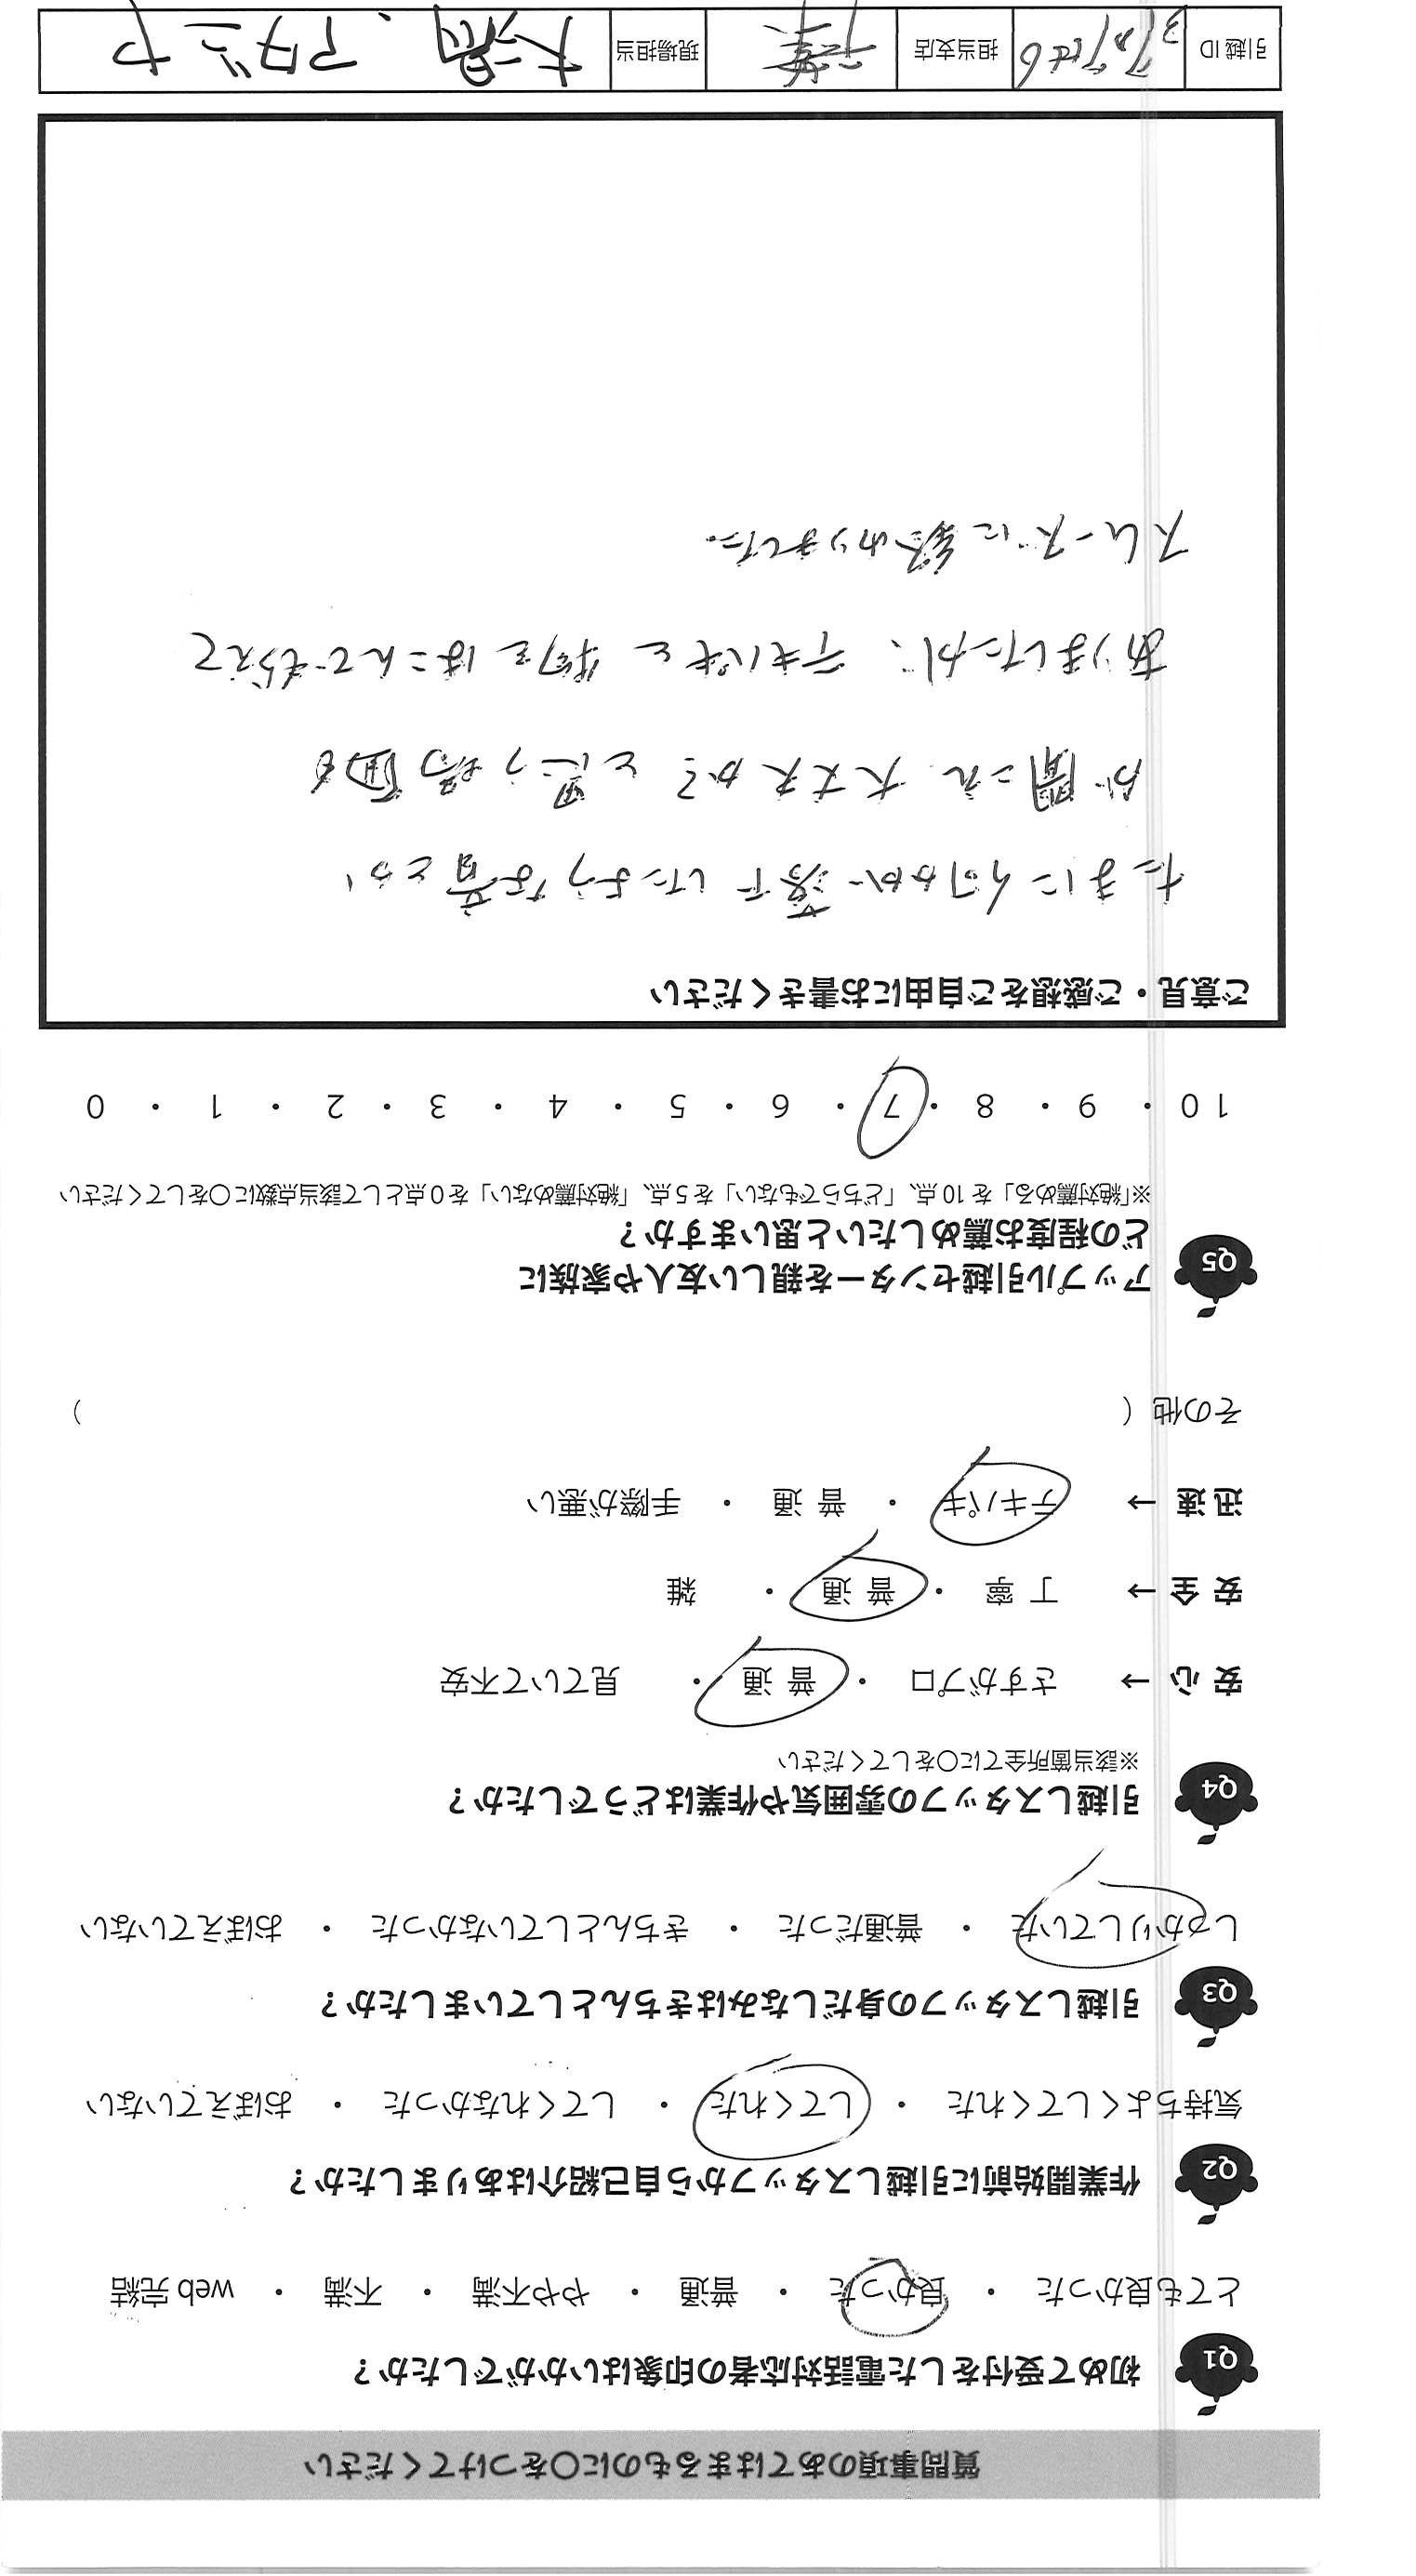 質問事項のあてはまるものに○をつけてください
Q1 初めて受付をした電話対応者の印象はいかがでしたか？
とても良かった ・ 良かった ・ 普通 ・ やや不満 ・ 不満 ・ web 完結
Q2 作業開始前に引越しスタッフから自己紹介はありましたか？
気持ちよくしてくれた ・ してくれた ・ してくれなかった ・ おぼえていない
Q3 引越しスタッフの身だしなみはきちんとしていましたか？
しっかりしていた ・ 普通だった ・ きちんとしていなかった ・ おぼえていない
Q4 引越しスタッフの雰囲気や作業はどうでしたか？
※該当箇所全てに○をしてください
安心 → さすがプロ ・ 普通 ・ 見ていて不安
安全 → 丁寧 ・ 普通 ・ 雑
迅速 → テキパキ ・ 普通 ・ 手際が悪い
その他 ( )
Q5 アップル引越センターを親しい友人や家族に
どの程度お薦めしたいと思いますか？
※「絶対薦める」を 10 点、「どちらでもない」を 5 点、「絶対薦めない」を 0 点として該当点数に○をしてください
10 ・ 9 ・ 8 ・ 7 ・ 6 ・ 5 ・ 4 ・ 3 ・ 2 ・ 1 ・ 0
ご意見・ご感想をご自由にお書きください
たまに何かが落下したような音とか
が聞こえ 大丈夫か? と思う場面も
ありましたが、テキパキと 物を はこんでもらえて
スムーズに終わりました。
引越 ID 担当支店 千葉 現場担当 大瀬、アガツヤ